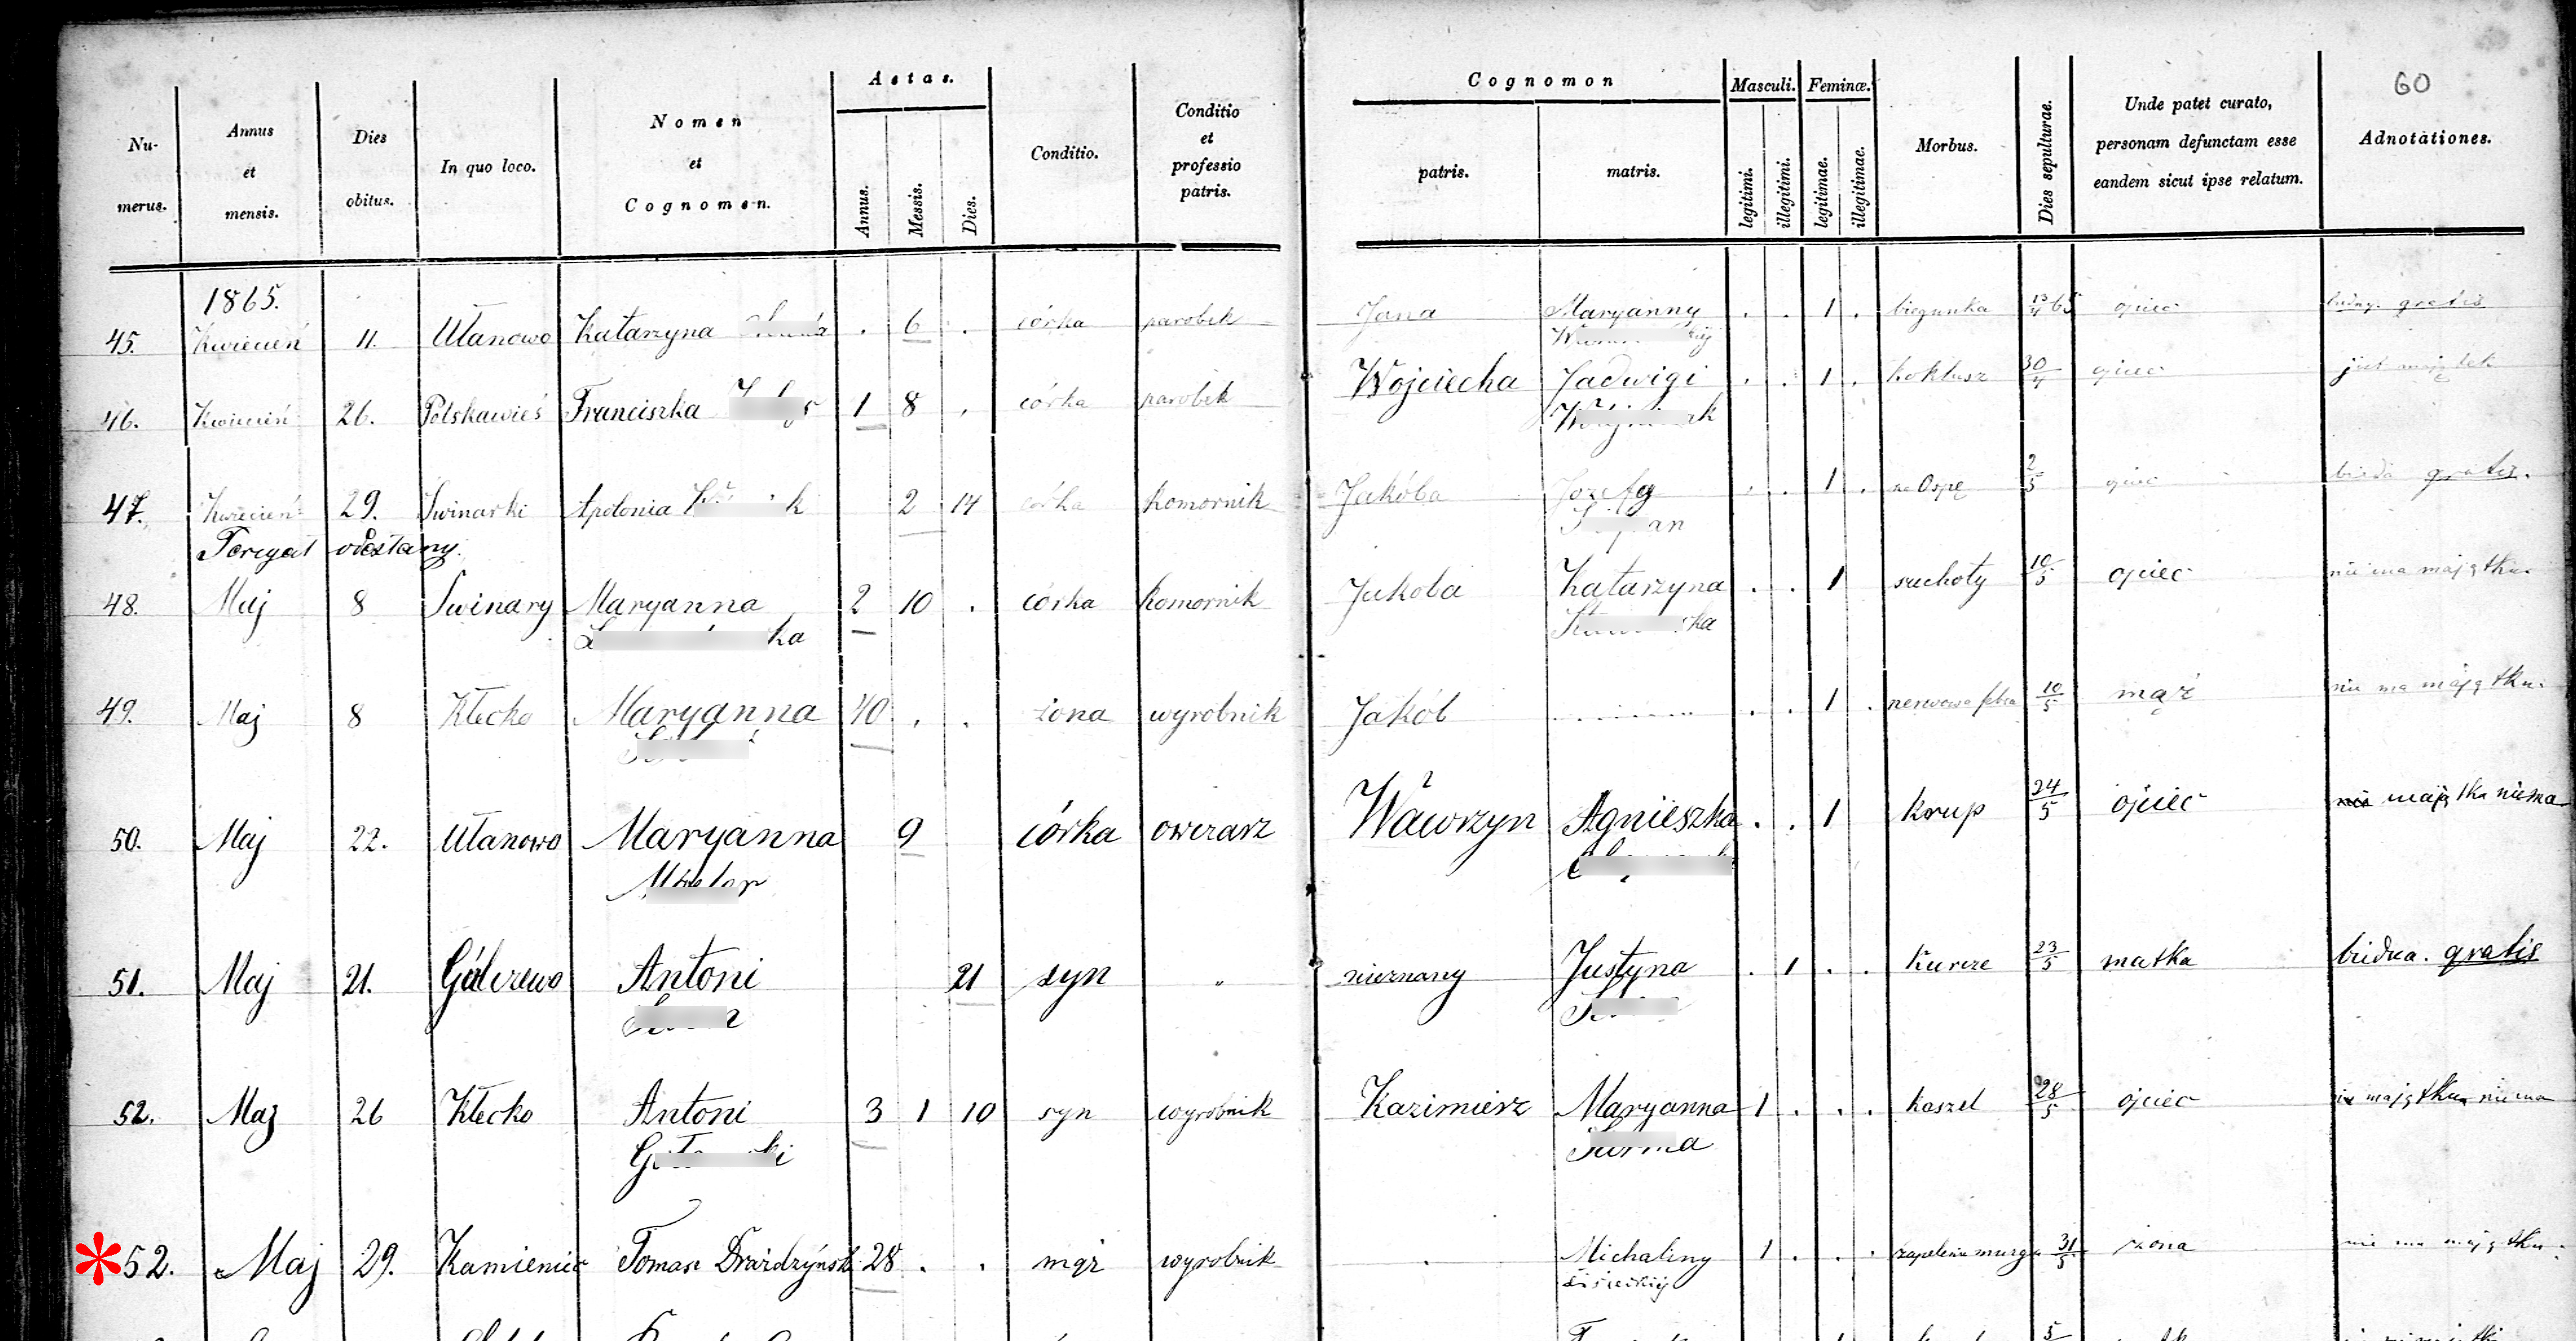 60
Nu-
merus.
Annus
et
mensis.
Dies
obitus.
In quo loco.
Nomen
et
Cognomen.
Aetas.
Annus.
Messis.
Dies.
Conditio.
Conditio
et
professio
patris.
Cognomen
patris.
matris.
Masculi.
legitimi.
illegitimi.
Feminæ.
legitimae.
illegitimae.
Morbus.
Dies sepulturae.
Unde patet curato,
personam defunctam esse
eandem sicut ipse relatum.
Adnotationes.
1865.
45. Kwiecień 11. Ułanowo Katarzyna . 6 . córka parobek Jana Maryanny . . 1 . biegunka 13/4 65 ojciec gratis
46. Kwiecień 26. Polskawieś Franciszka 1 8 . córka parobek Wojciecha Jadwigi . . 1 . koklusz 30/4 ojciec
47. Kwiecień 29. Swinarki Apolonia 2 14 córka komornik Jakóba Jozefy . . 1 . na Ospę 2/5 ojciec bieda gratis.
odesłany.
48. Maj 8 Swinary Maryanna 2 10 . córka komornik Jakoba Katarzyna . . 1 suchoty 10/5 ojciec nie ma majątku.
49. Maj 8 Kłecko Maryanna 40 . . żona wyrobnik Jakób . . 1 . nerwowa febra 10/5 mąż nie ma majątku.
50. Maj 22. Ułanowo Maryanna 9 córka owczarz Wawrzyn Agnieszka . . 1 Krup 24/5 ojciec majątku niema
51. Maj 21. Gólczewo Antoni 21 syn " nieznany Justyna . 1 . . Kurcze 23/5 matka biedna. gratis
52. Maj 26 Kłecko Antoni 3 1 10 syn wyrobnik Kazimierz Maryanna 1 . . . Kaszel 28/5 ojciec majątku niema
*52. Maj 29. Kamieniec Tomasz Drażdzyński 28 . . mąż wyrobnik . Michaliny 1 . . . zapalenie muzgu 31/5 żona nie ma majątku.